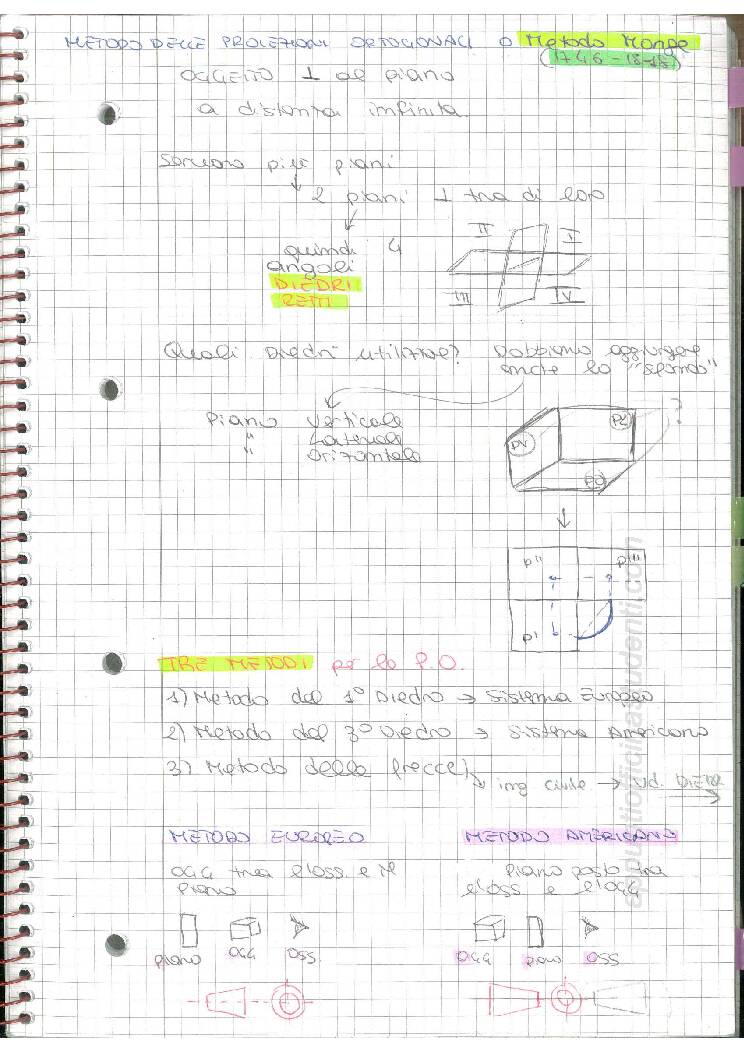 METODO DELLE PROIEZIONI ORTOGONALI O Metodo Monge
(1746-1818)
OGGETTO ⊥ al piano
a distanza infinita.
Servono più piani
2 piani ⊥ tra di loro
quindi 4
angoli
DIEDRI
RETTI
II I
III IV
Quali Diedri utilizzare? Dobbiamo aggiungere
anche lo "sfondo"
Piano Verticale
" Laterale
" Orizzontale
PV PL ?
PO
P'' P'''
P'
TRE METODI per le P.O.
1) Metodo del 1° Diedro → Sistema Europeo
2) Metodo del 3° Diedro → Sistema Americano
3) Metodo delle frecce
ing civile → vd. DIETRO
METODO EUROPEO METODO AMERICANO
OGG tra l'oss e il
piano
Piano posto tra
l'oss e l'ogg
piano OGG OSS.
OGG piano OSS
appuntiofficinastudenti.com